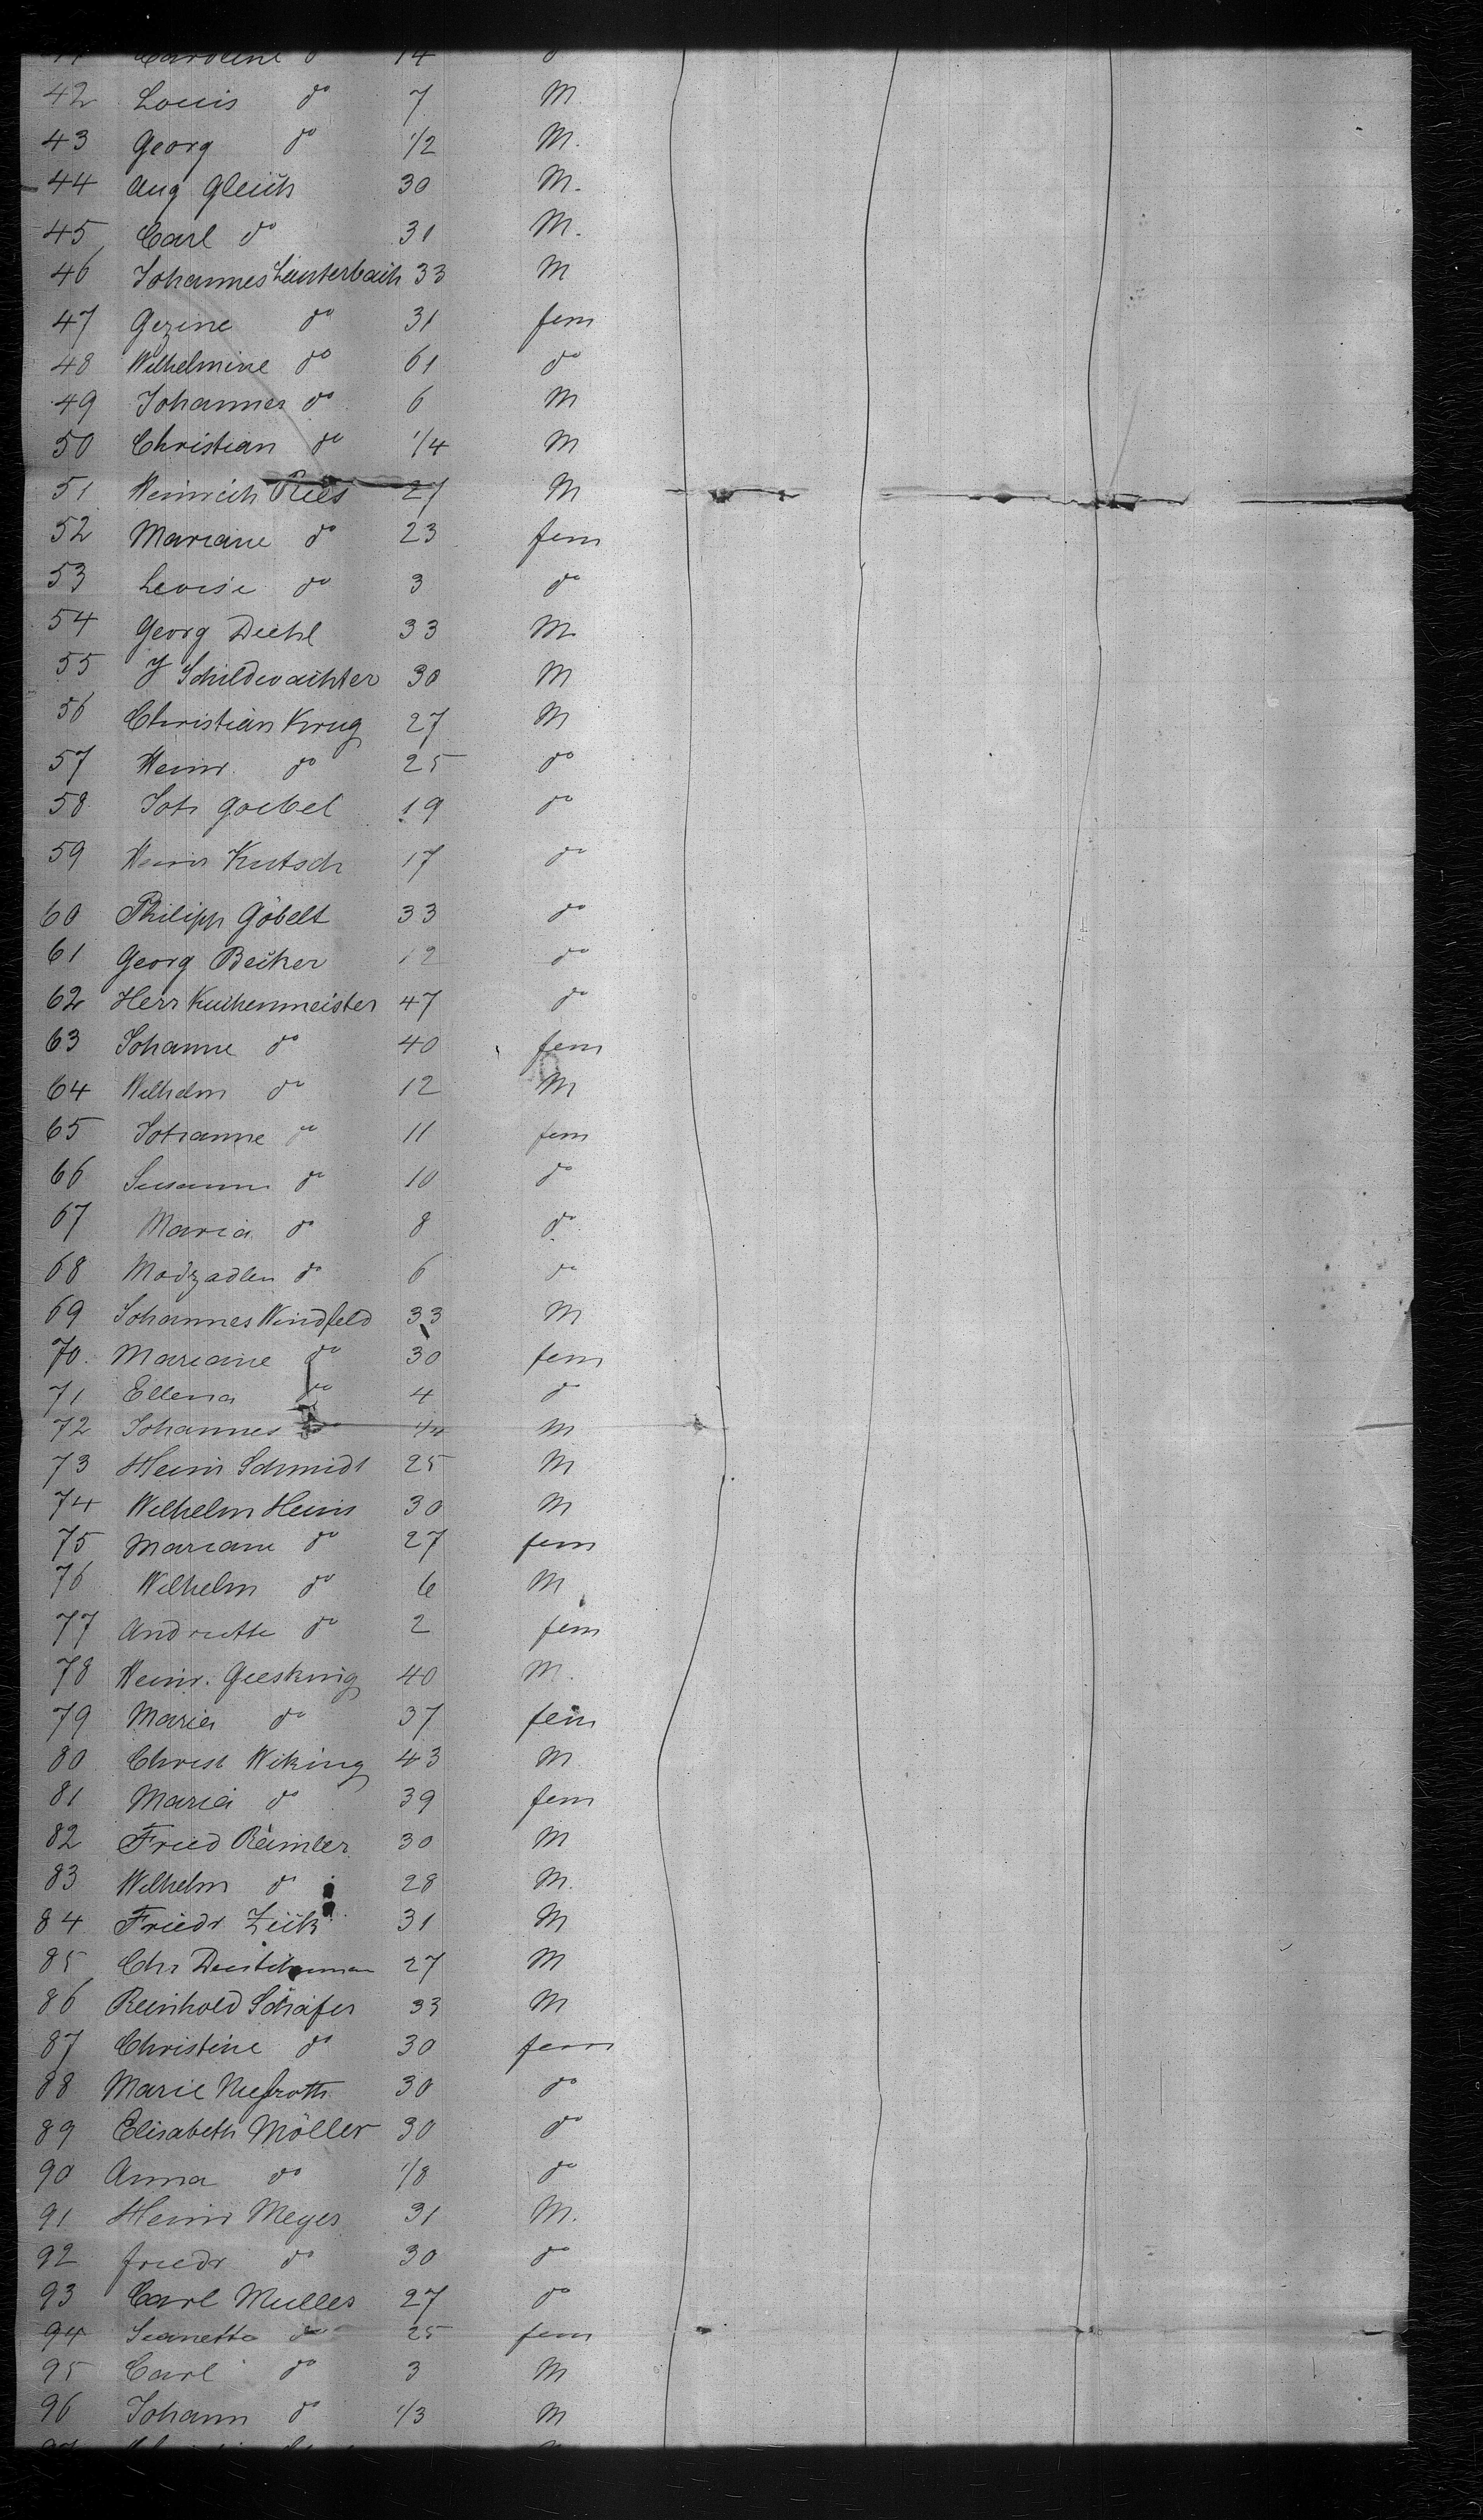 41 Caroline do 14 do
42 Louis do 7 M.
43 Georg do 1/2 M.
44 Aug Gleich 30 M.
45 Carl do 31 M.
46 Johannes Lauterbach 33 M
47 Gezine do 31 fem
48 Wilhelmine do 61 do
49 Johannes do 6 M
50 Christian do 1/4 M
51 Heinrich Rees 27 M
52 Mariane do 23 fem
53 Lovise do 3 do
54 Georg Diehl 33 M
55 J Schildwachter 30 M
56 Christian Krug 27 M
57 Heinr. do 25 do
58 Joh Goebel 19 do
59 Heinr Kutsch 17 do
60 Philipp Göbelt 33 do
61 Georg Becker 12 do
62 Herr Kuchenmeister 47 do
63 Johanne do 40 fem
64 Wilhelm do 12 M
65 Johanne do 11 fem
66 Susanne do 10 do
67 Maria do 8 do
68 Modzadlen do 6 do
69 Johannes Windfeld 33 M
70. Mariane do 30 fem
71 Ellena do 4 do
72 Johannes do M
73 Heinr Schmidt 25 M
74 Wilhelm Heins 30 M
75 Mariane do 27 fem
76 Wilhelm do 6 M
77 Andrette do 2 fem
78 Heinr. Giesking 40 M.
79 Maria do 37 fem
80 Christ Wiking 43 M
81 Maria do 39 fem
82 Fried Reimler 30 M
83 Wilhelm do 28 M.
84 Friedr. Zick 31 M
85 Chr 27 M
86 Reinhold Schäfer 33 M
87 Christine do 30 fem
88 Marie 30 do
89 Elisabeth Möller 30 do
90 Anna do 1/8 do
91 Heinr Meyer 31 M.
92 Friedr do 30 do
93 Carl Muller 27 do
94 Jeanette do 25 fem
95 Carl do 3 M
96 Johann do 1/3 M
97